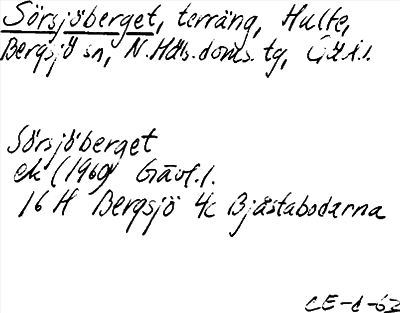 Sörsjöberget, terräng, Hulte,
Bergsjö sn, N.Häls.doms.tg, Gäl.l.
Sörsjöberget
ek (1960) Gävl.l.
16 H Bergsjö 4c Bjåstabodarna
CE-d-62